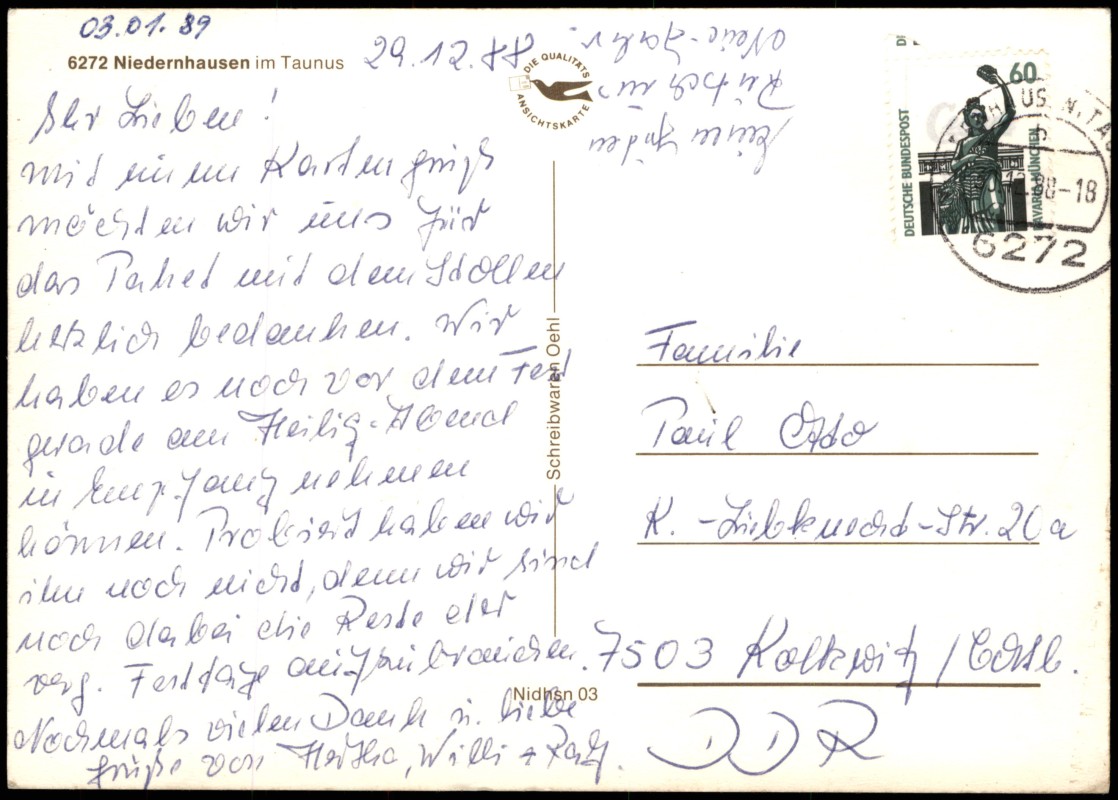 03.01.89
6272 Niedernhausen im Taunus
29.12.88
Ihr Lieben!
mit einem Kartengruß
möchten wir uns für
das Paket mit dem Stollen
herzlich bedanken. Wir
haben es noch vor dem Fest
gerade am Heilig-Abend
in Empfang nehmen
können. Probiert haben wir
ihn noch nicht, denn wir sind
noch dabei die Reste der
verg. Festtage aufzubrauchen.
Nochmals vielen Dank u. liebe
Grüße von Hertha, Willi +
einen guten
Rutsch ins
Neue-Jahr.
DIE QUALITÄTS
ANSICHTSKARTE
Schreibwaren Oehl
Nidhsn 03
60
DEUTSCHE BUNDESPOST
BAVARIA MÜNCHEN
12.88-18
6272
Familie
Paul Otto
K.-Liebknecht-Str. 20a
7503 Kolkwitz / Cottb.
DDR